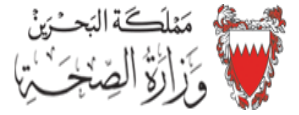 مَمْلَكَة البَحْرَيْن
وَزَارَةُ الصِّحَّة